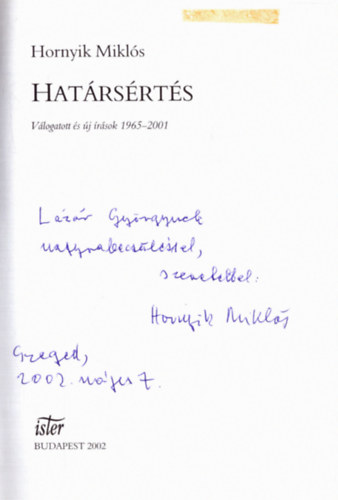 Hornyik Miklós
HATÁRSÉRTÉS
Válogatott és új írások 1965–2001
Lázár Györgynek
nagyrabecsüléssel,
szeretettel:
Hornyik Miklós
Szeged,
2002. május 7.
ister
BUDAPEST 2002